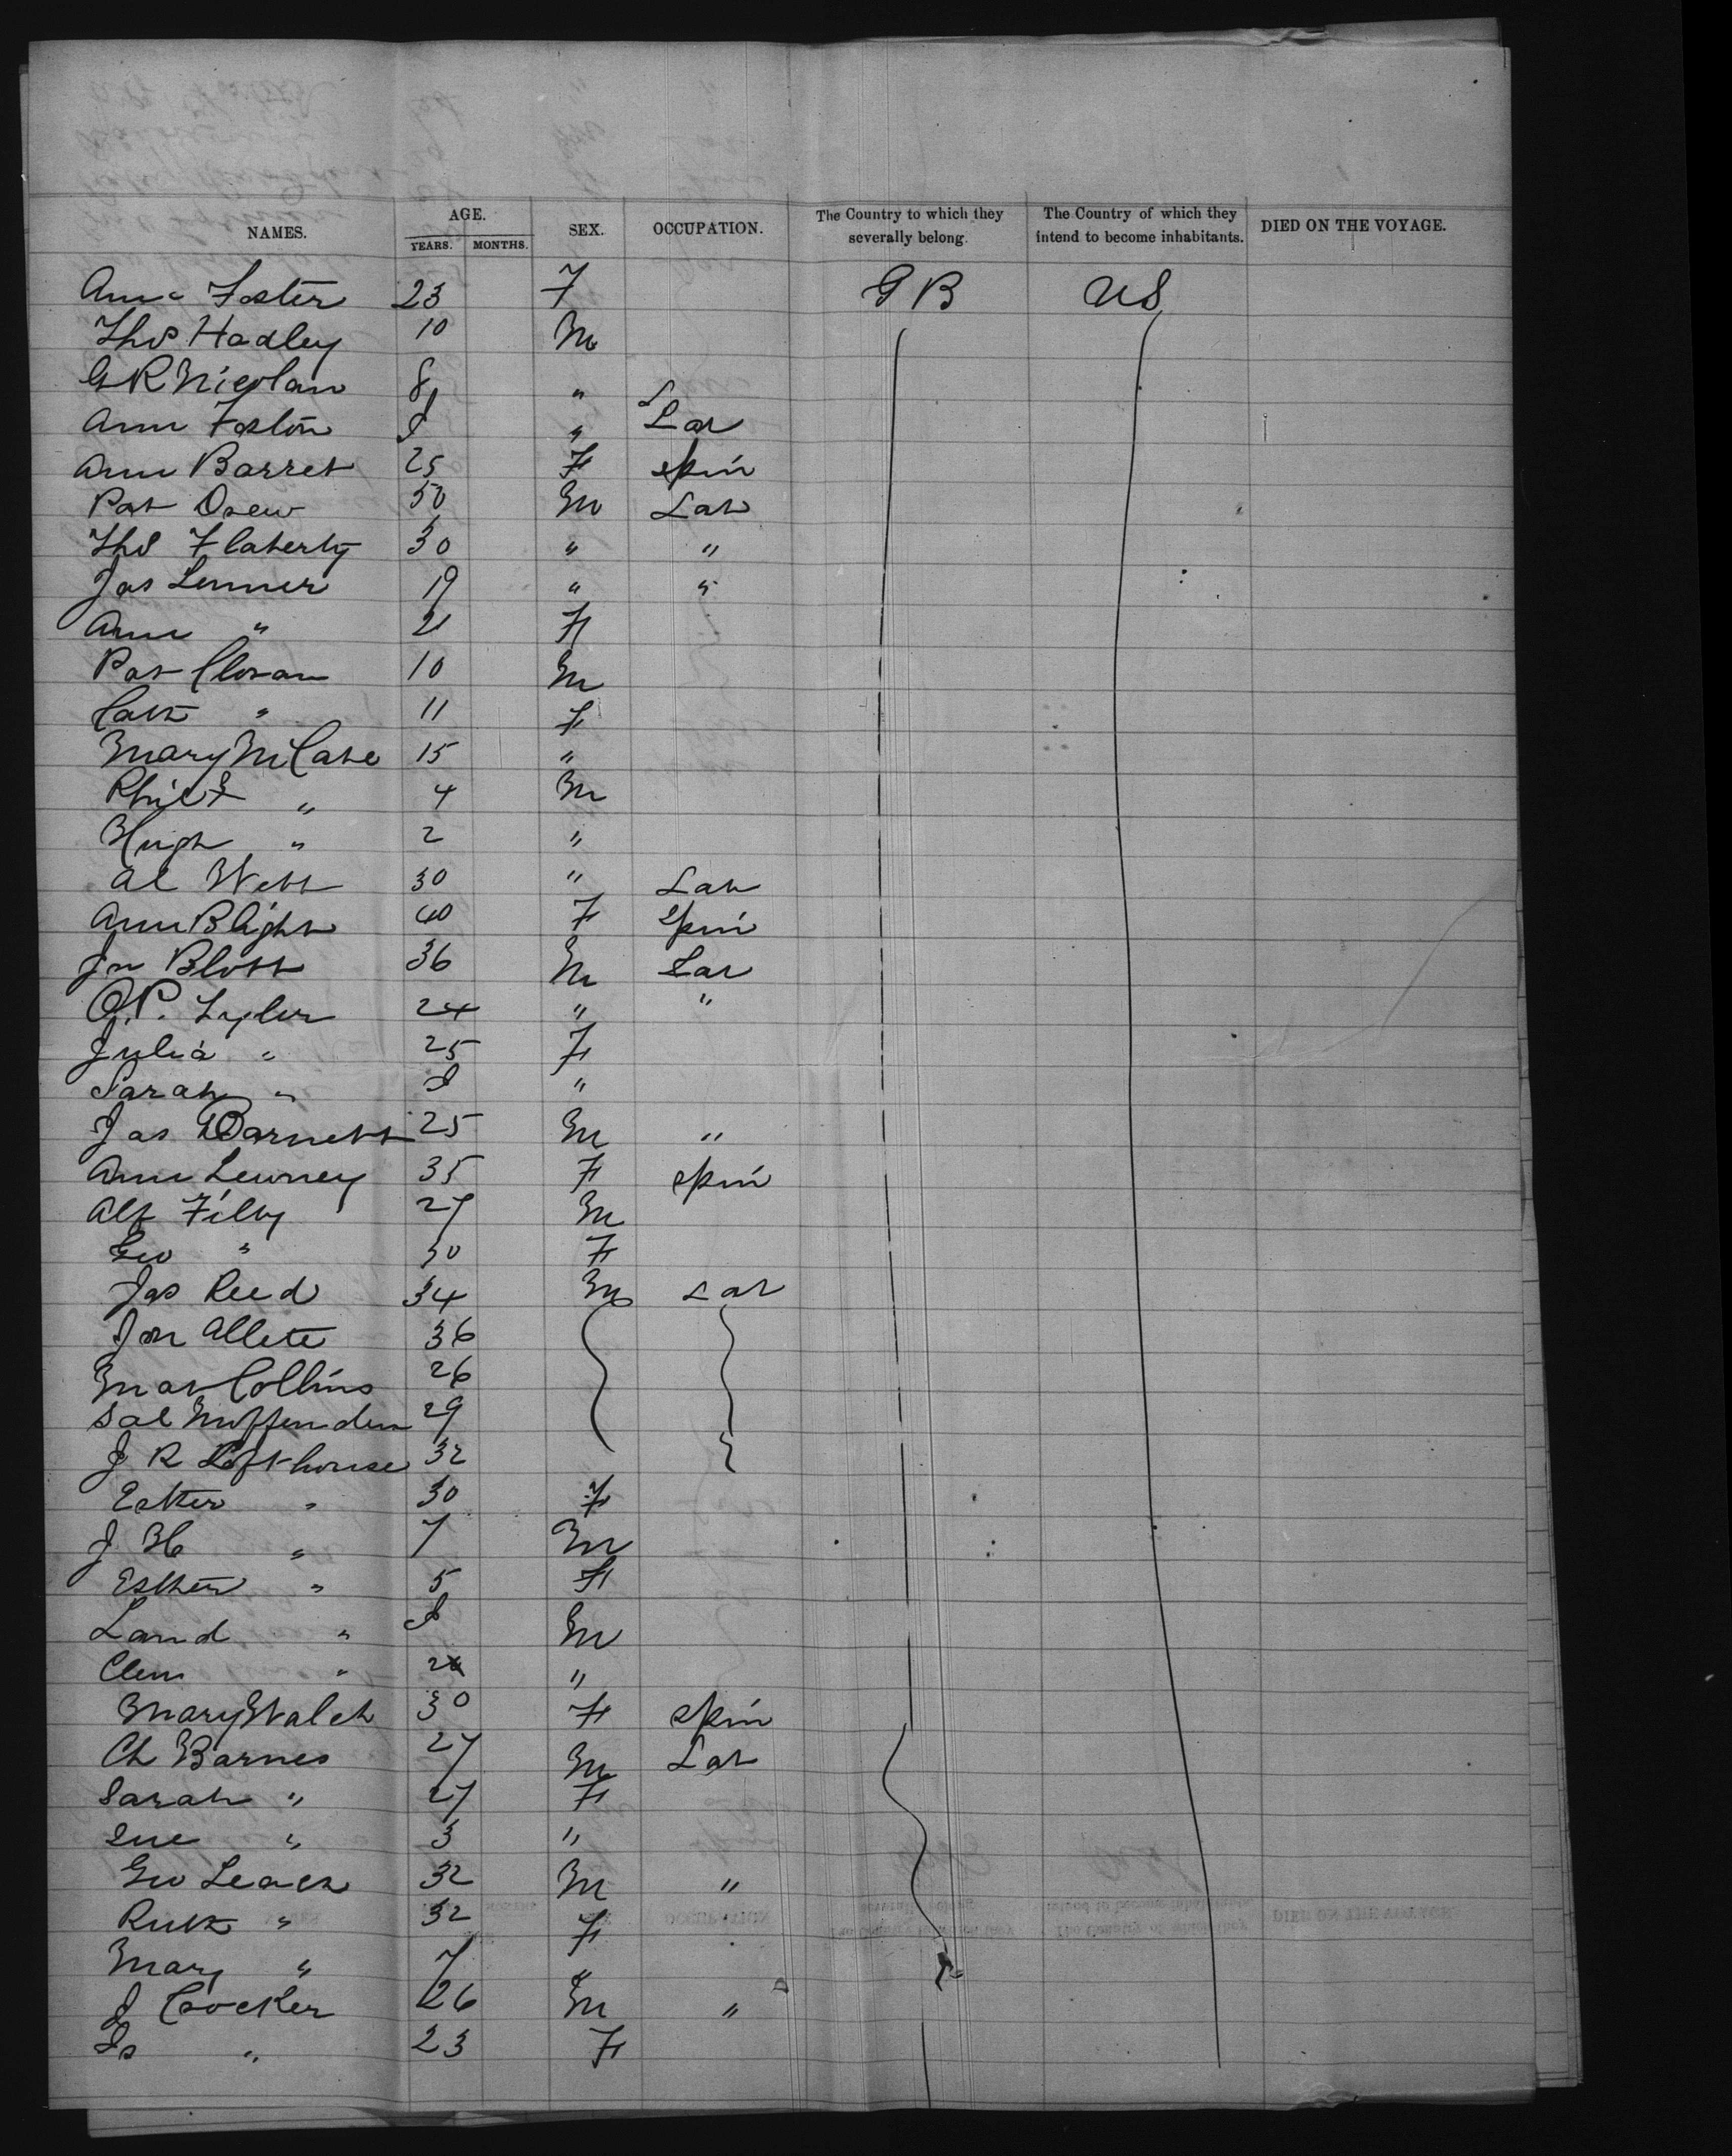 NAMES. AGE. YEARS. MONTHS. SEX. OCCUPATION. The Country to which they severally belong. The Country of which they intend to become inhabitants. DIED ON THE VOYAGE.
Ann Foster 23 F G B US
Thos Hadley 10 M
G R 8 "
Ann " Lab
Ann Barret 25 F spin
Pat Drew 50 M Lab
Thos Flaherty 30 " "
Jas Lenner 19 " "
Ann " 21 F
Pat Cloran 10 M
Cath " 11 F
Mary McCabe 15 "
Phil " 4 M
Hugh " 2 "
Al Webb 30 " Lab
Ann Blight 40 F spin
Jn Blott 36 M Lab
O.P. Lyler 24 " "
Julia " 25 F
Sarah " "
Jas Barnett 25 M "
Ann Lewney 35 F spin
Alf Filby 27 M
Geo " 30 F
Jas Reed 34 M Lab
Jn Allete 36
Mat Collins 26
Sal 29
J R Lofthouse 32
Ester " 30 F
J H " 7 M
Esther " 5 F
Land " M
Clem " 2 "
Mary Walch 30 F spin
Ch Barnes 27 M Lab
Sarah " 27 F
Sue " 3 "
Geo Leach 32 M "
Ruth " 32 F
Mary " 7 "
J Crocker 26 M "
Is " 23 F